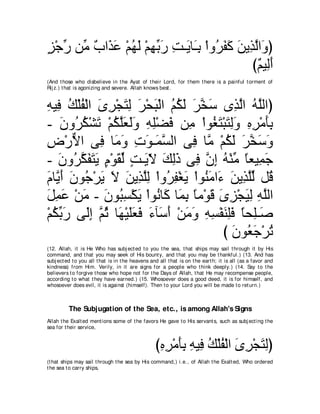 وَالَّذِينَ كَفَرُواْ بِآيَـتِ رَبِّهِمْ لَهُمْ عَذَابٌ مِّن رِّجْزٍ
أَلِيمٌ)
(And those who disbelieve in the Ayat of their Lord, for them there is a painful torment of
Rijz ) that is agonizing and severe. Allah knows best.
(اللَّهُ الَّذِى سَخَّرَ لَكُمُ الْبَحْرَ لِتَجْرِىَ الْفُلْكُ فِيهِ
بِأَمْرِهِ وَلِتَبْتَغُواْ مِن فَضْلِهِ وَلَعَلَّكُمْ تَشْكُرُونَ -
وَسَخَّرَ لَكُمْ مَّا فِى السَّمَـوَتِ وَمَا فِى الاٌّرْضِ
جَمِيعاً مِّنْهُ إِنَّ فِى ذَلِكَ لآيَـتٍ لِّقَوْمٍ يَتَفَكَّرُونَ -
قُل لِّلَّذِينَ ءَامَنُواْ يَغْفِرُواْ لِلَّذِينَ لاَ يَرْجُونَ أَيَّامَ
اللَّهِ لِيَجْزِىَ قَوْماً بِمَا كَانُواْ يَكْسِبُونَ - مَنْ عَمِلَ
صَـلِحاً فَلِنَفْسِهِ وَمَنْ أَسَآءَ فَعَلَيْهَا ثُمَّ إِلَى رَبِّكُمْ
تُرْجَعُونَ )
(12. Allah, it is He Who has subjected to you the sea, that ships may sail through it by His
command, and that you may seek of His bounty, and that you may be thankful.) (13. And has
subjected to you all that is in the heavens and all that is on the earth; it is all (as a favor and
kindness) from Him. Verily, in it are signs for a people who think deeply.) (14. Say to the
believers to forgive those who hope not for the Days of Allah, that He may recompense people,
according to what they have earned.) (15. Whosoever does a good deed, it is for himself, and
whosoever does evil, it is against (himself). Then to your Lord you will be made to return.)
The Subjugation of the Sea, etc., is among Allah's Signs
Allah the Exalted mentions some of the favors He gave to His servants, such as subjecting the
sea for their service,
(لِتَجْرِىَ الْفُلْكُ فِيهِ بِأَمْرِهِ)
(that ships may sail through the sea by His command,) i.e., of Allah the Exalted, Who ordered
the sea to carry ships.